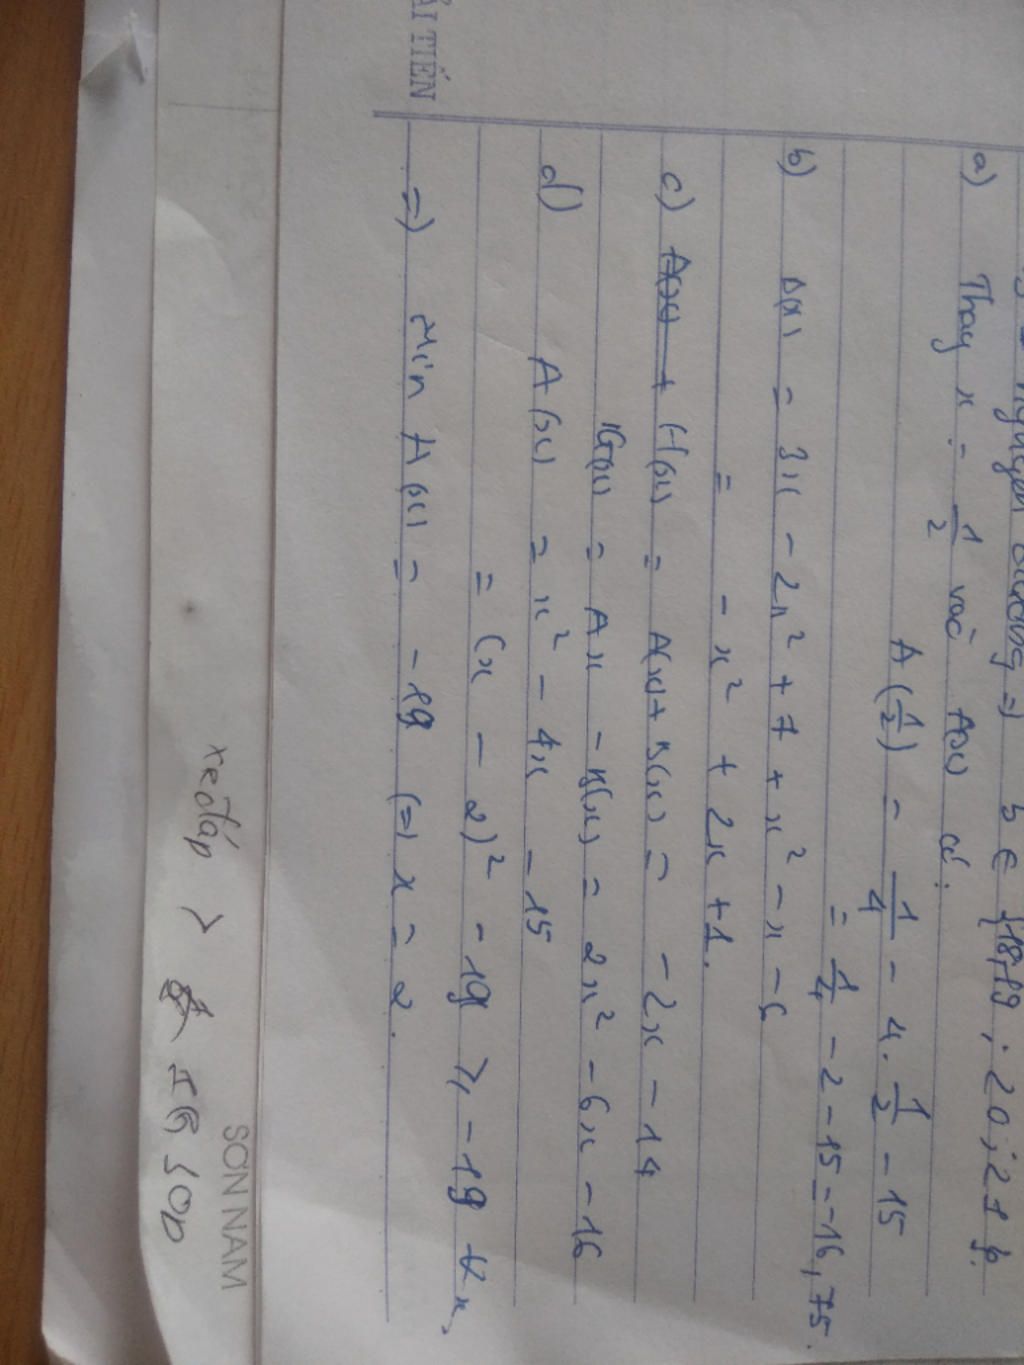 b ∈ {18; 19; 20; 21}.
a) Thay x = 1/2 vào A(x) có:
A(1/2) = 1/4 - 4. 1/2 - 15
= 1/4 - 2 - 15 = -16,75
b) B(x) = 3x - 2x² + 7 + x² - x - 6
= - x² + 2x + 1.
c) H(x) = A(x) + B(x) = - 2x - 14
G(x) = Ax - B(x) = 2x² - 6x - 16
d) A(x) = x² - 4x - 15
= (x - 2)² - 19 ⩾ -19 ∀x,
=> Min A(x) = -19 (=) x = 2.
ẢI TIẾN
xe đáp >
SƠN NAM